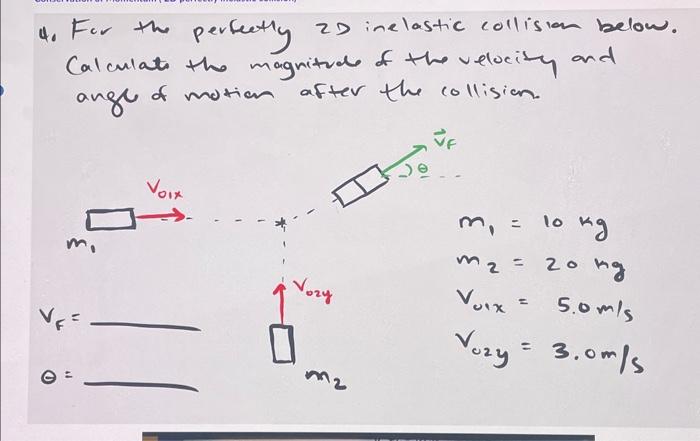 4. For the perfectly 2D inelastic collision below.
Calculate the magnitude of the velocity and
angle of motion after the collision.
V⃗F
θ
V01x
m1
m1 = 10 kg
m2 = 20 kg
V01x = 5.0 m/s
V02y = 3.0 m/s
V02y
m2
VF =
θ =